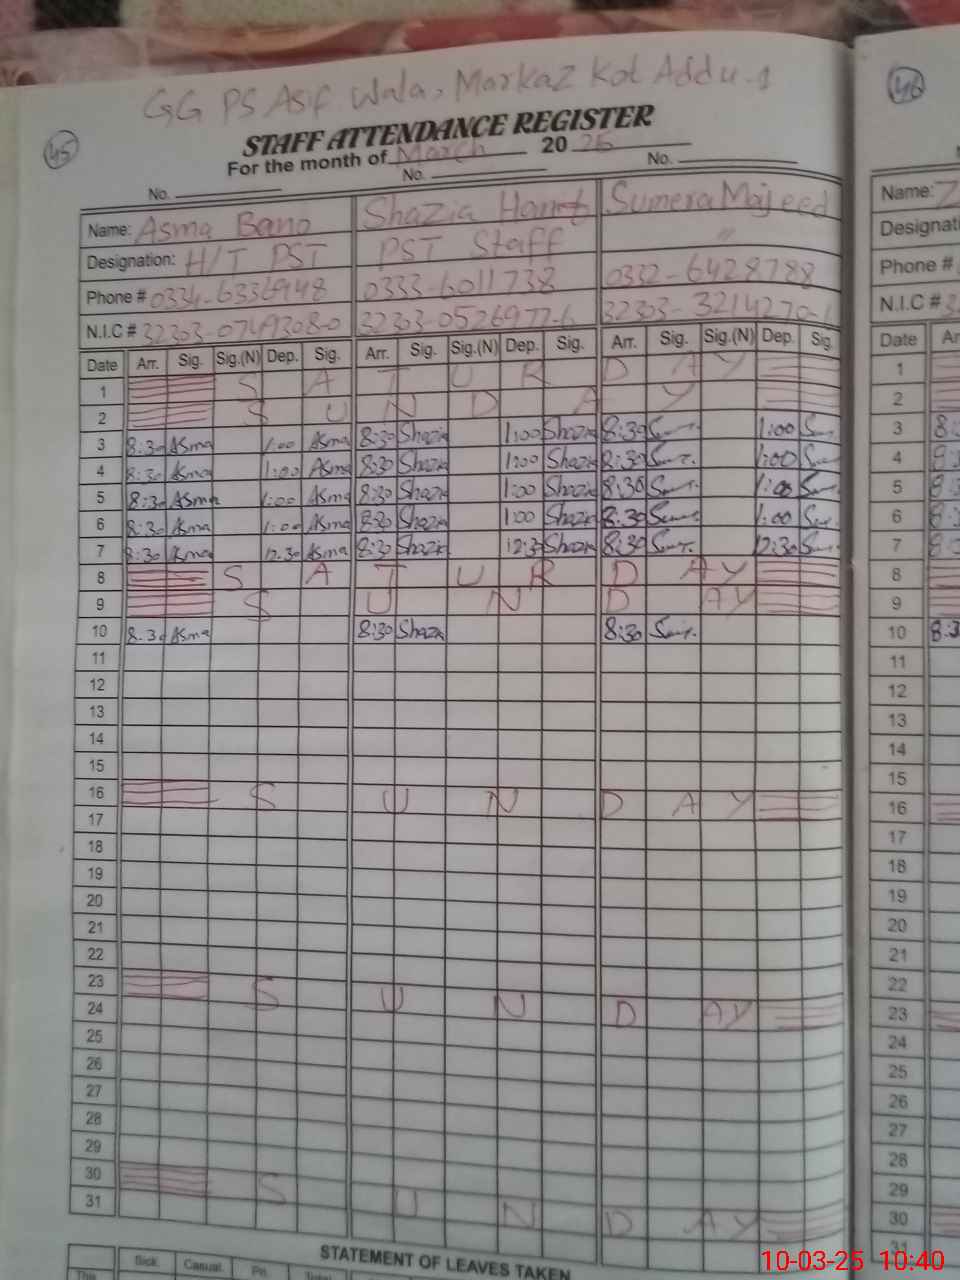 GG PS Asif Wala, Markaz Kot Addu-1
45
46
STAFF ATTENDANCE REGISTER
For the month of March 20 25
No. No. No.
Name: Asma Bano Shazia Hanif Sumera Majeed Name:
Designation: H/T PST PST Staff " Designati
Phone # 0334-6336948 0333-6011738 0332-6428788 Phone #
N.I.C # 32303-0526977-6 32303-3214270-1 N.I.C #
Date Arr. Sig. Sig.(N) Dep. Sig. Arr. Sig. Sig.(N) Dep. Sig. Arr. Sig. Sig.(N) Dep. Sig. Date Ar
1 S A T U R D A Y 1
2 S U N D A Y 2
3 8:30 Asma 1:00 Asma 8:30 Shazia 1:00 Shazia 8:30 1:00 3 8:
4 8:30 Asma 1:00 Asma 8:30 Shazia 1:00 Shazia 8:30 1:00 4
5 8:30 Asma 1:00 Asma 8:30 Shazia 1:00 Shazia 8:30 1:00 5
6 8:30 Asma 1:00 Asma 8:30 Shazia 1:00 Shazia 8:30 1:00 6
7 8:30 Asma 12:30 Asma 8:30 Shazia 12:30 Shazia 8:30 12:30 7
8 S A T U R D A Y 8
9 S U N D A Y 9
10 8:30 Asma 8:30 Shazia 8:30 10 8:3
11 11
12 12
13 13
14 14
15 15
16 S U N D A Y 16
17 17
18 18
19 19
20 20
21 21
22 22
23 S U N D A Y 23
24 24
25 25
26 26
27 27
28 28
29 29
30 S U N D A Y 30
31 31
STATEMENT OF LEAVES TAKEN
Sick Casual Pri. Total
This
10-03-25 10:40